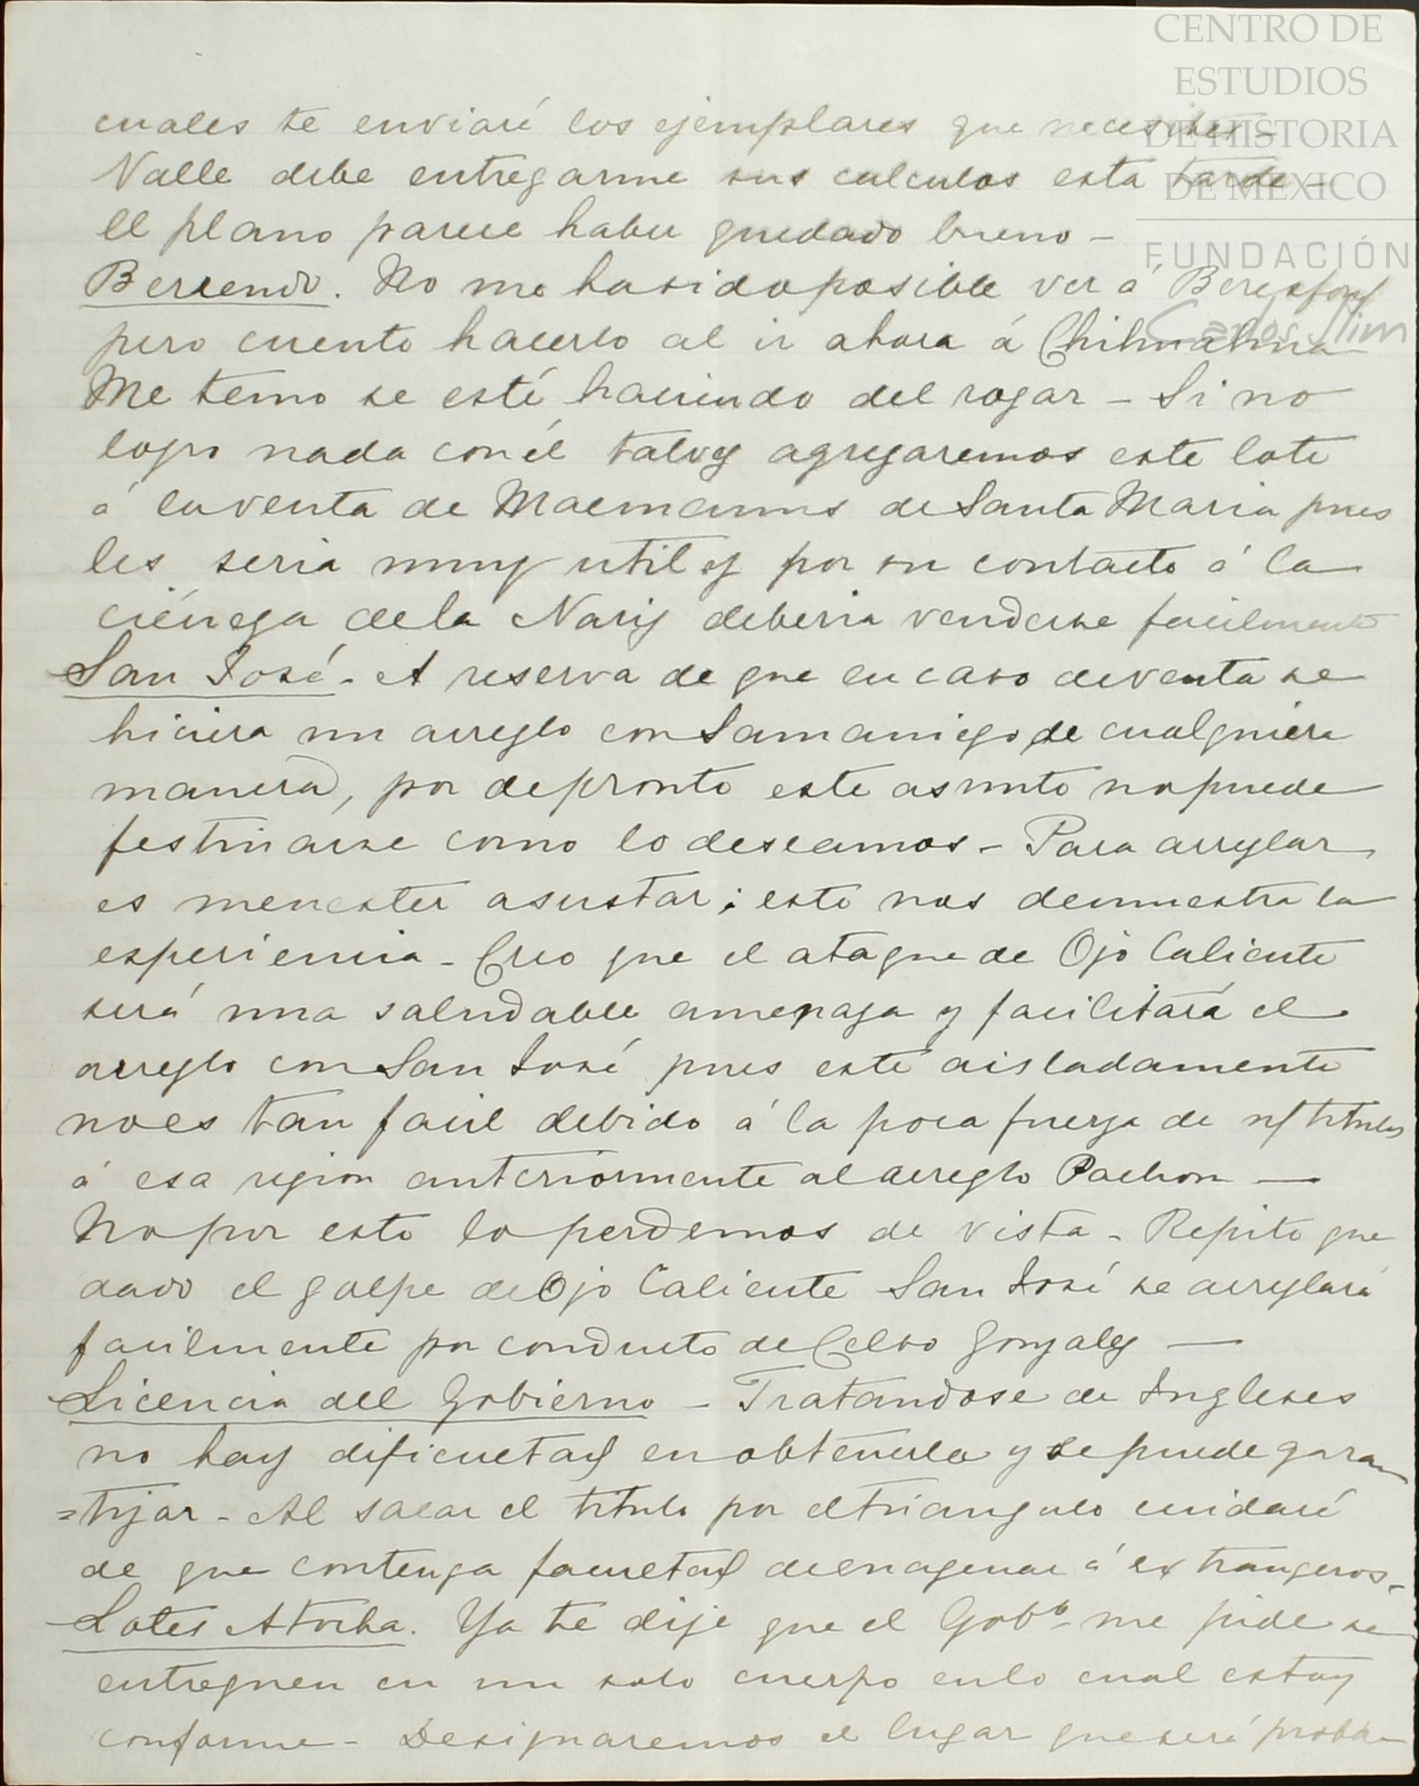 CENTRO DE
ESTUDIOS
DE HISTORIA
DE MEXICO
FUNDACIÓN
Carlos Slim
cuales te enviaré los ejemplares que necesites -
Valle debe entregarme sus calculos esta tarde -
El plano parece haber quedado bueno -
Berrendo. No me ha sido posible ver á Beresford
pero cuento hacerlo al ir ahora á Chihuahua
Me temo se esté haciendo del rogar - Si no
logro nada con él talvez agregaremos este lote
á la venta de de Santa Maria pues
les seria muy util y por su contacto á la
ciénega de la Nariz deberia venderse facilmente
San José - A reserva de que en caso de venta se
hiciera un arreglo con Samaniego de cualquiera
manera, por de pronto este asunto no puede
festinarse como lo deseamos - Para arreglar
es menester asustar; esto nos demuestra la
esperiencia - Creo que el ataque de Ojo Caliente
será una saludable amenaza y facilitará el
arreglo con San José pues este aisladamente
no es tan facil debido á la poca fuerza de n/ titulos
á esa region anteriormente al arreglo Pachon —
No por esto lo perdemos de vista - Repito que
dado el golpe de Ojo Caliente San José se arreglará
facilmente por conducto de Celso Gonzalez —
Licencia del Gobierno - Tratandose de Ingleses
no hay dificultad en obtenerla y se puede garan
=tizar - Al sacar el titulo por el triangulo cuidaré
de que contenga facultad de enagenar á extrangeros -
Lotes Atocha. Ya te dije que el Gobº me pide se
entreguen en un solo cuerpo en lo cual estoy
conforme - Designaremos el lugar que será proba-